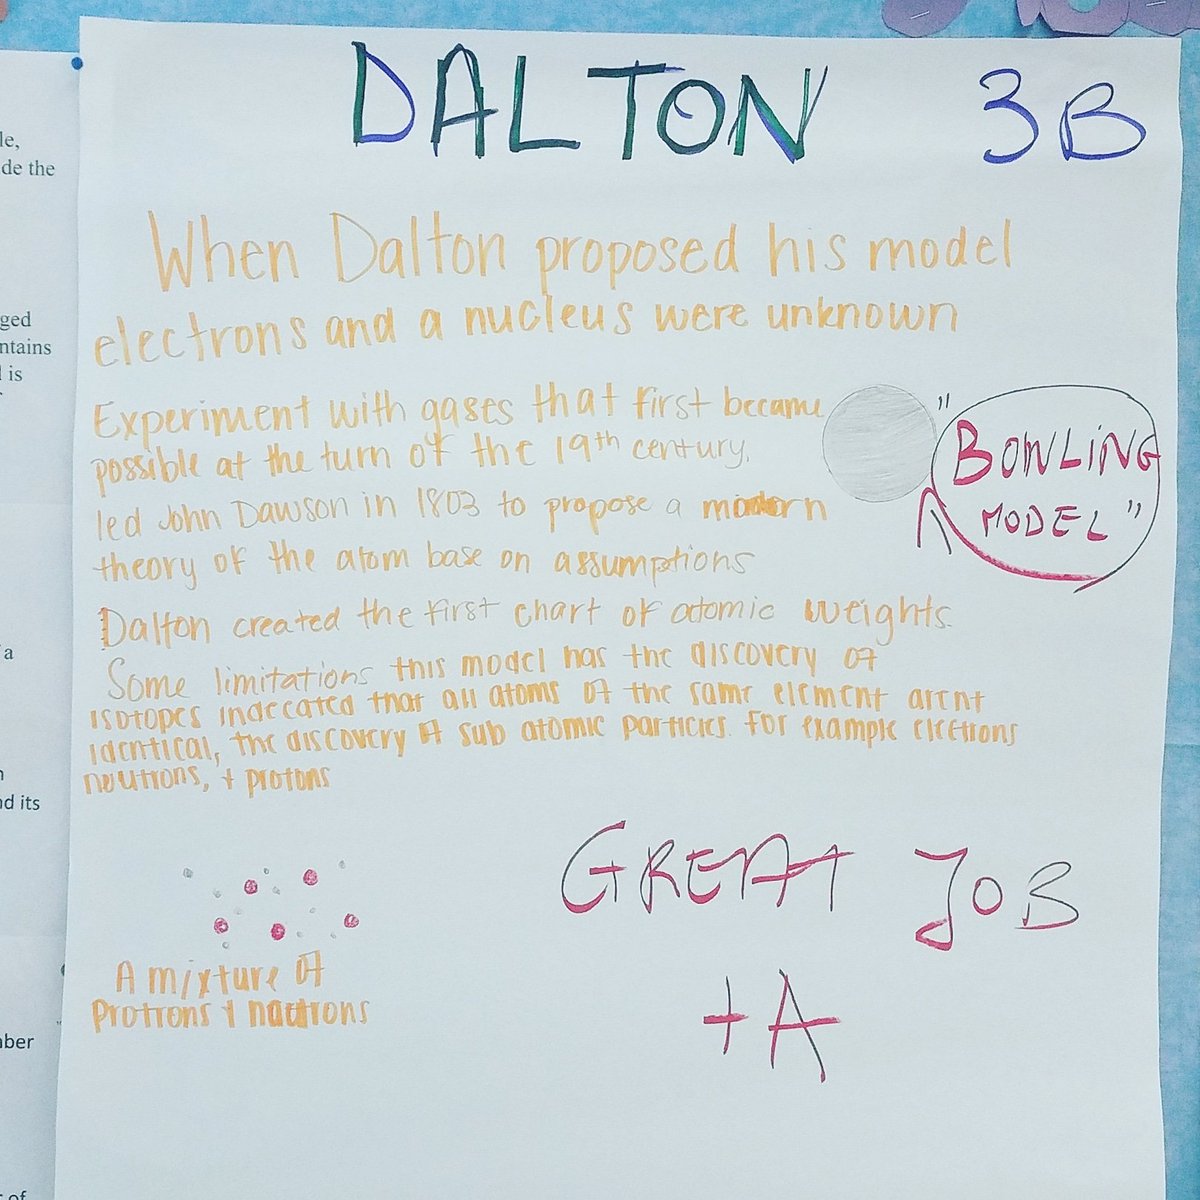 DALTON 3B
When Dalton proposed his model
electrons and a nucleus were unknown
Experiment with gases that first became
possible at the turn of the 19th century.
led John Dawson in 1803 to propose a modorn
theory of the atom base on assumptions
Dalton created the first chart of atomic weights.
Some limitations this model has the discovery of
isotopes indecated that all atoms of the same element arent
identical, the discovery of sub atomic particles. For example electrons
neutrons, + protons
"BOWLING
MODEL"
A mixture of
Protrons + nautrons
GREAT JOB
+A
le,
de the
ged
ntains
is
a
nd its
mber
of